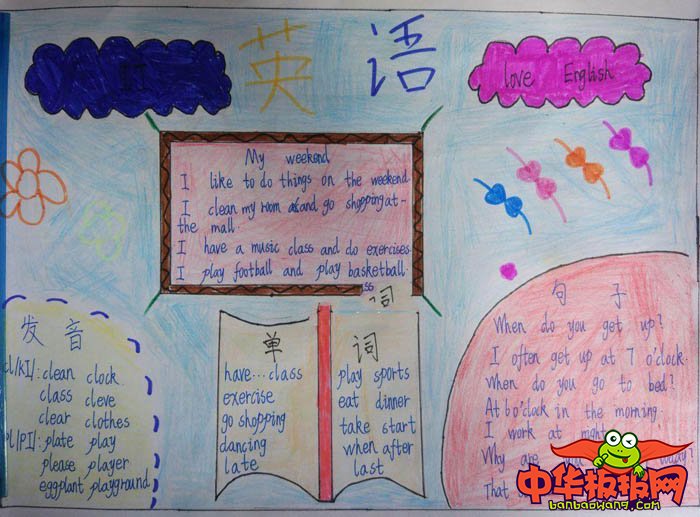 英语
love English
My weekend
I like to do things on the weekend.
I clean my room and go shopping at-
the mall.
I have a music class and do exercises.
I play football and play basketball.
词
发音
cl/Kl/: clean clock
class cleve
clear clothes
pl/Pl/: plate play
please player
eggplant playground
单词
have...class
exercise
go shopping
dancing
late
play sports
eat dinner
take start
when after
last
句子
When do you get up?
I often get up at 7 o'clock.
When do you go to bed?
At 6 o'clock in the morning.
I work at night
Why are
That
中华板报网
banbaowang.com